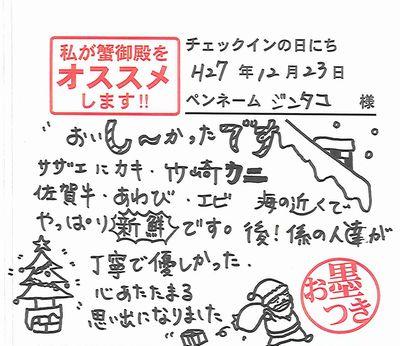 私が蟹御殿を
オススメ
します!!
チェックインの日にち
H27 年 12 月 23 日
ペンネーム ジンタコ 様
おいし〜かったです
サザエにカキ・竹崎カニ
佐賀牛・あわび・エビ 海の近くで
やっぱり新鮮です。後!係の人達が
丁寧で優しかった.
心あたたまる
思い出になりました
お墨つき